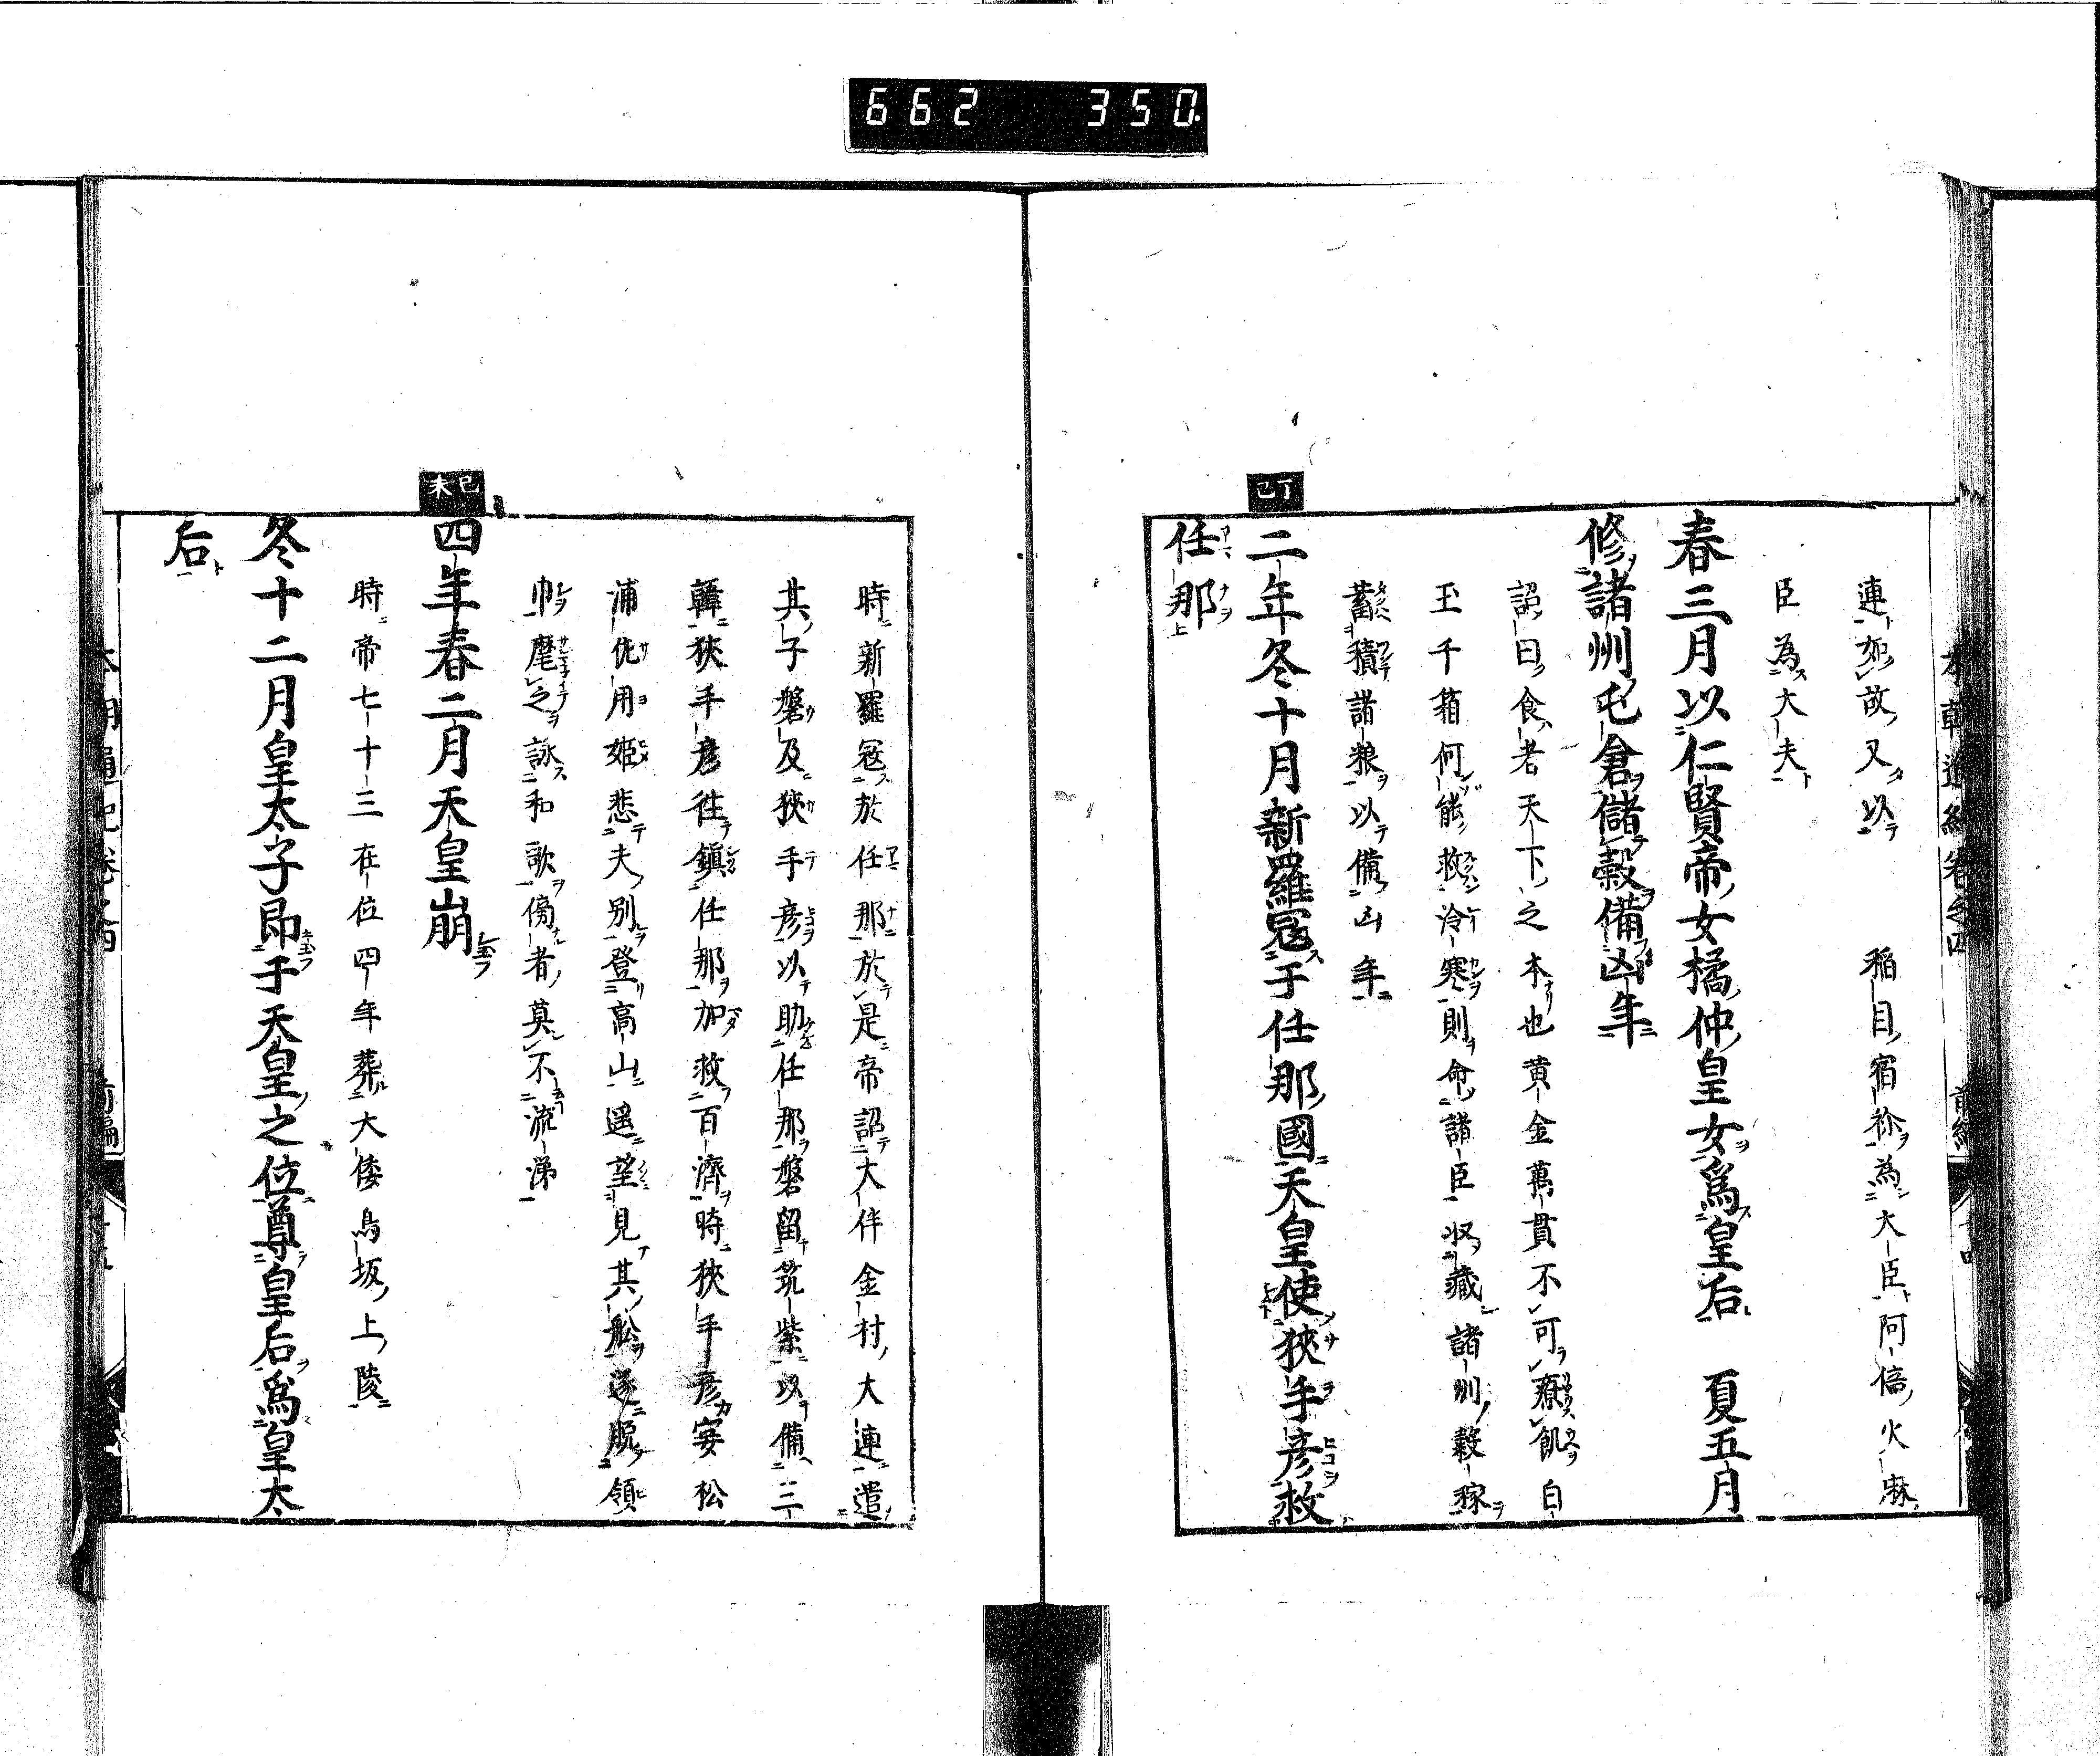 662 350.
連如故又以 稲目宿祢為大臣阿倍火麻
臣為大夫
春三月以仁賢帝女橘仲皇女爲皇后 夏五月
修諸州屯倉儲穀備凶年
詔曰食者天下之本也黄金萬貫不可療飢白
玉千箱何能救冷寒則命諸臣収藏諸州穀稼
蓄積諸粮以備凶年
丁巳
二年冬十月新羅寇于任那國天皇使狹手彦救
任那
時新羅寇於任那於是帝詔大伴金村大連遣
其子磐及狹手彦以助任那磐留筑紫以備三
韓狹手彦往鎭任那加救百濟時狹手彦妾松
浦佐用姫悲夫別登高山遥望見其舩遂脱領
巾麾之詠和歌傍者莫不流涕
己未
四年春二月天皇崩
時帝七十三在位四年葬大倭鳥坂上陵
冬十二月皇太子即于天皇之位尊皇后爲皇太
后